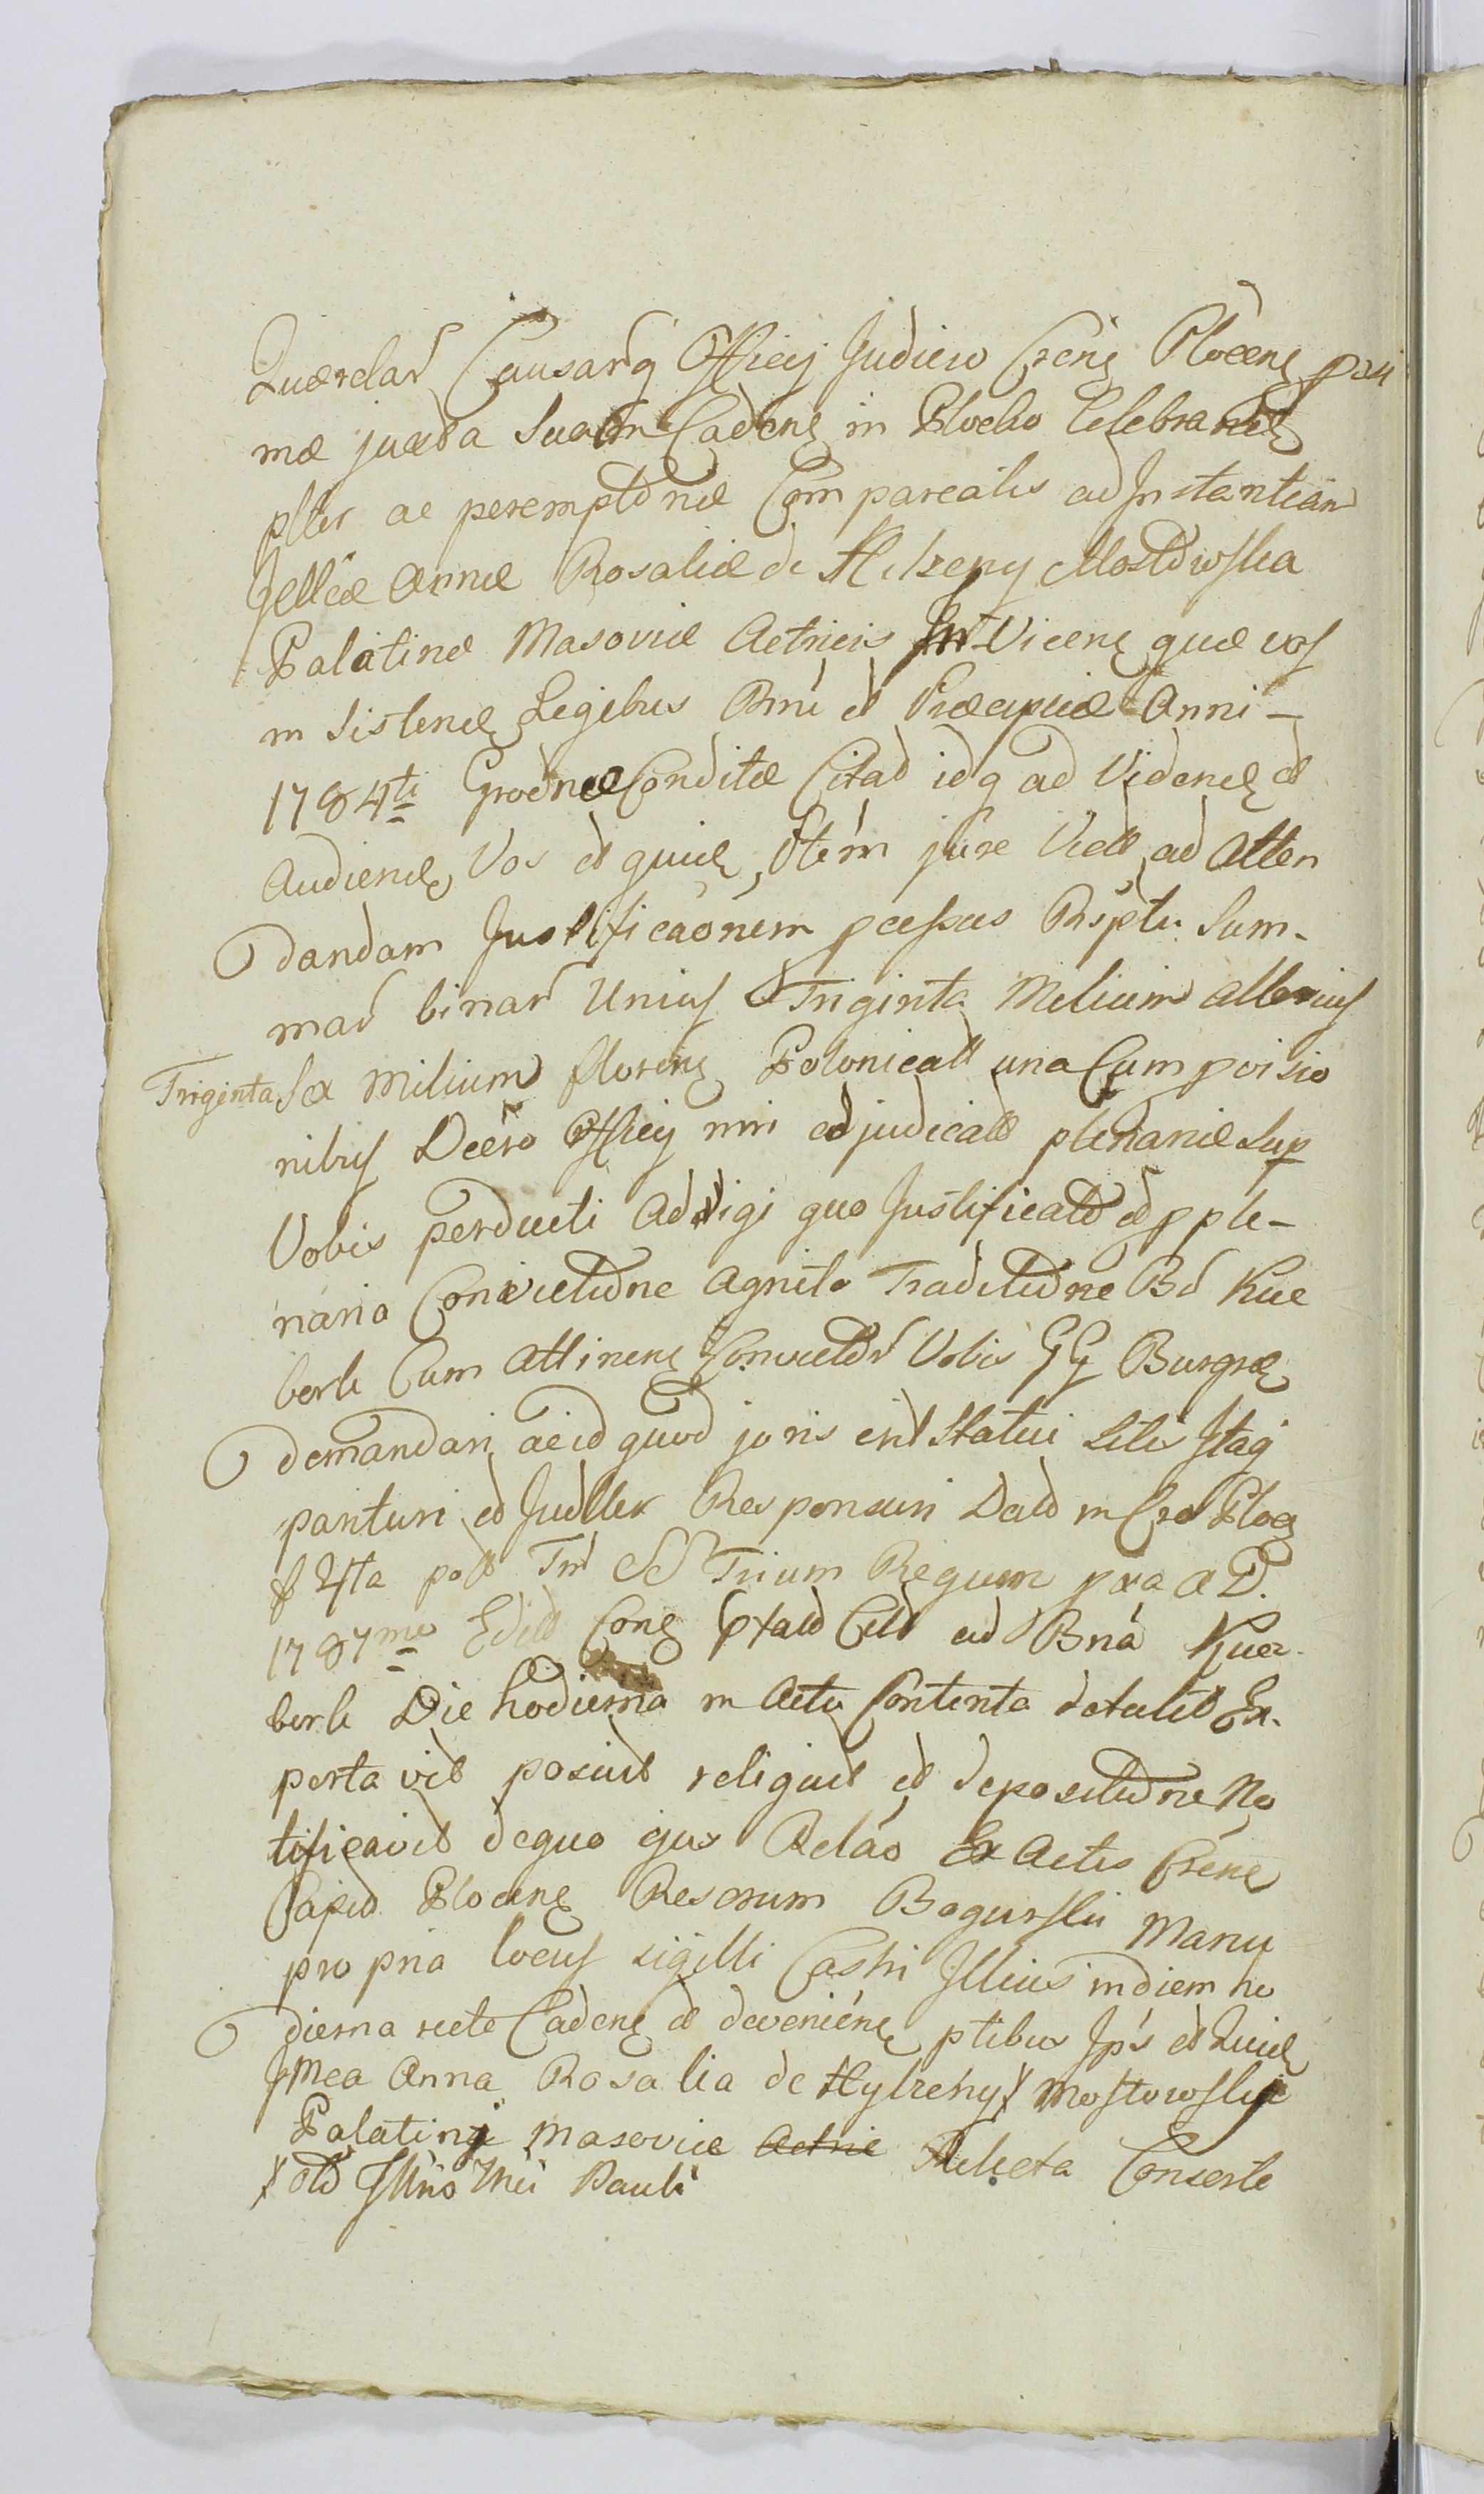 Querelar Causarq Officij Judicio Crens Plocens pri
mæ juxta Suam Cadens in Plocko Celebrand
plter ac peremptorie Compareatis ad Instantiam
Annæ Rosaliæ de Hilzeny Mostowska
Palatinæ Masoviæ Actricis Vicens quæ vos
in sistend Legibus Rni et Præcipue Anni –
1784ti Grodnæ Conditæ Citat idq ad Videnđ et
Audiend, Vos et quid, Item jure Vict, ad Atten
dandam Justificaonem pcessus Rsptu Sum-
mar binar Unius Triginta Milium alterius
Triginta Sex Milium floreng Polonicall una Cum poisio
nibus Decro Officij mri adjudicatt plenarie Sup
Vobis perducti Adstigi quo Justificato et pple-
naria Convictione Agnito Traditione Bd Kuc
bork Cum Attinens Convictor Vobis GG Burgræ
demandari, ac id quod juris erit Statui Litis Itaq
parituri et Judllr Responsuri Datt in Cro Ploc
f 4ta post Tm SS Trium Regum pxa A D.
1787mo Edit Cons Extatt Citt ad Bna Kucz-
bork Die hodierna in Actu Contenta detulit Ex-
portavit posuit reliquit et depositione No
tificavit dequo ejus Relao Ex Actis Crens
Capit Plocens Rescrum Bogurski Manu
propria locus sigilli Castri Illius in diem ho
dierna recte Cadens et devenièns ptibus Ips et Quid
Anna Rosalia de Hylzeny Mostowsky
Palatini Masoviæ Actric Relicta Conserte
olt Illmo Pauli